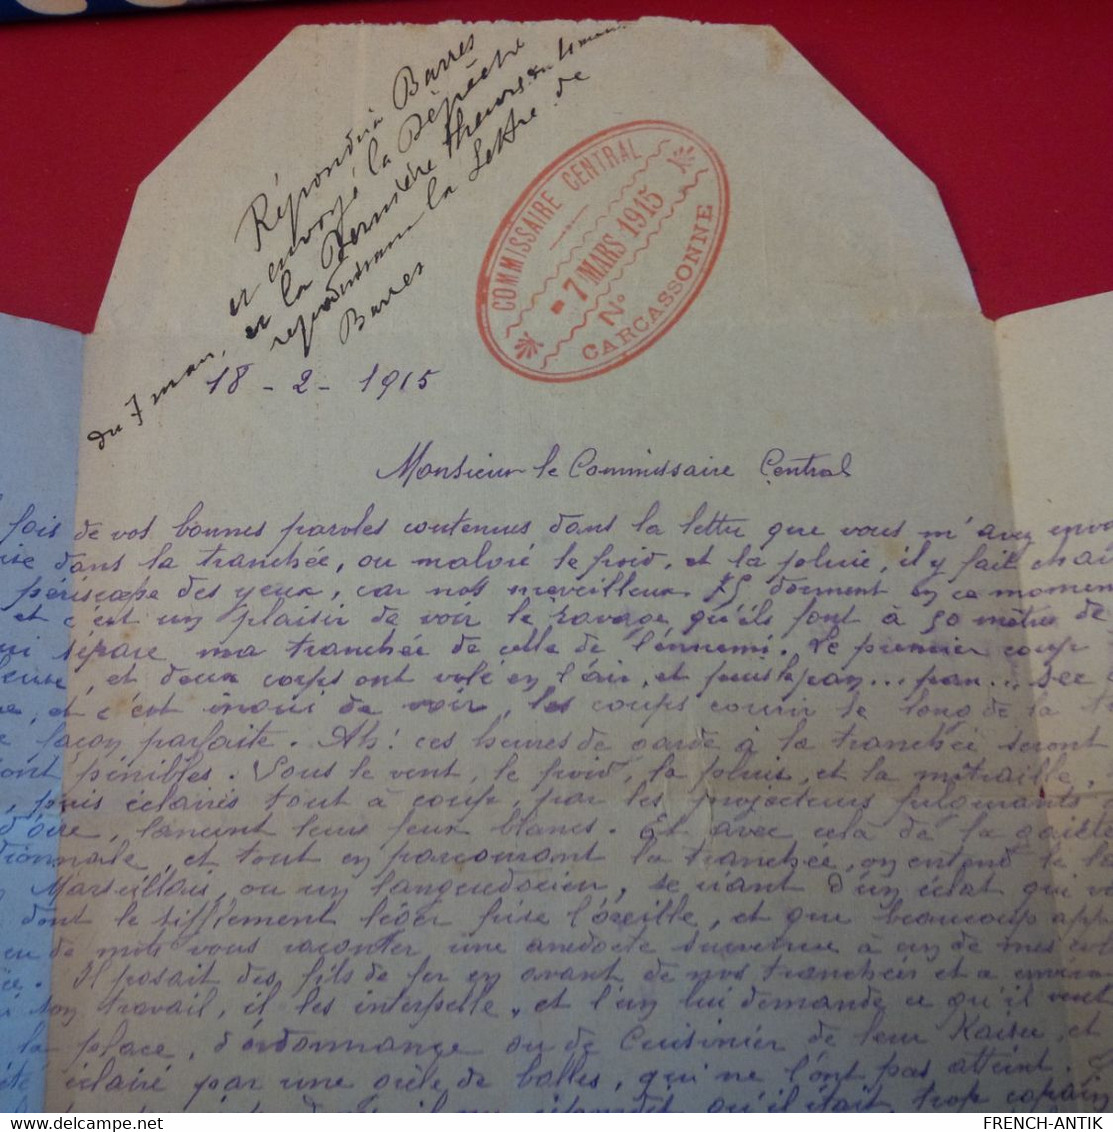 Répondu à Barres
et envoyé la Dépêche
et la Dernière heure du 4 mars
reproduisant la lettre de
Barres
du 7 mars,
COMMISSAIRE CENTRAL
- 7 MARS 1915
N°
CARCASSONNE
18 - 2 - 1915
Monsieur le Commissaire Central
fois de vos bonnes paroles contenues dans la lettre que vous m'avez
dans la tranchée, ou malgré le froid, et la pluie, il y fait
périscope des yeux, car nos merveilleux 75 dorment en ce moment
et c'est un plaisir de voir le ravage qu'ils font à 50 mètres de
sépare ma tranchée de celle de l'ennemi. Le premier coup
, et deux corps ont volé en l'air, et puis le pan... pan... sec
, et c'est inoui de voir, les coups courir le long de la
façon parfaite. Ah! ces heures de garde à la tranchée seront
pénibles. Sous le vent, le froid, la pluie, et la mitraille,
, puis éclairés tout à coup, par les projecteurs fulgurants
, lancent leurs feux blancs. Et avec celà de la gaieté
, et tout en parcourant la tranchée, on entend le
Marseillais, ou un languedocien, se riant d'un éclat qui
dont le sifflement léger frise l'oreille, et que beaucoup
de mots vous raconter une anedocte survenue à un de mes
. Il posait des fils de fer en avant de nos tranchées et a
son travail, il les interpelle, et l'un lui demande ce qu'il veut
la place, d'ordonnance ou de Cuisinier de leur Kaiser, et
été éclairé par une grêle de balles, qui ne l'ont pas atteint.
qu'il était trop copain
FRENCH-ANTIK